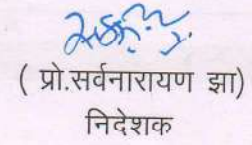 ( प्रो.सर्वनारायण झा)
निदेशक